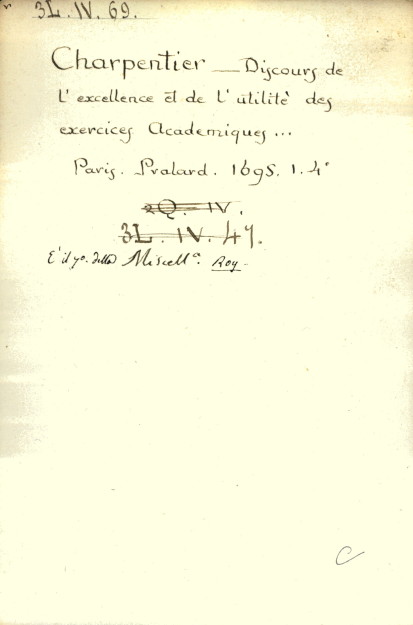 3L. IV. 69.
Charpentier — Discours de
L'excellence et de L'utilitè des
exercices Academiques...
Paris. Pralard. 1695. 1. 4°
2Q. IV.
3L. IV. 47.
E' il 7o. della Miscell.a Roy-
C